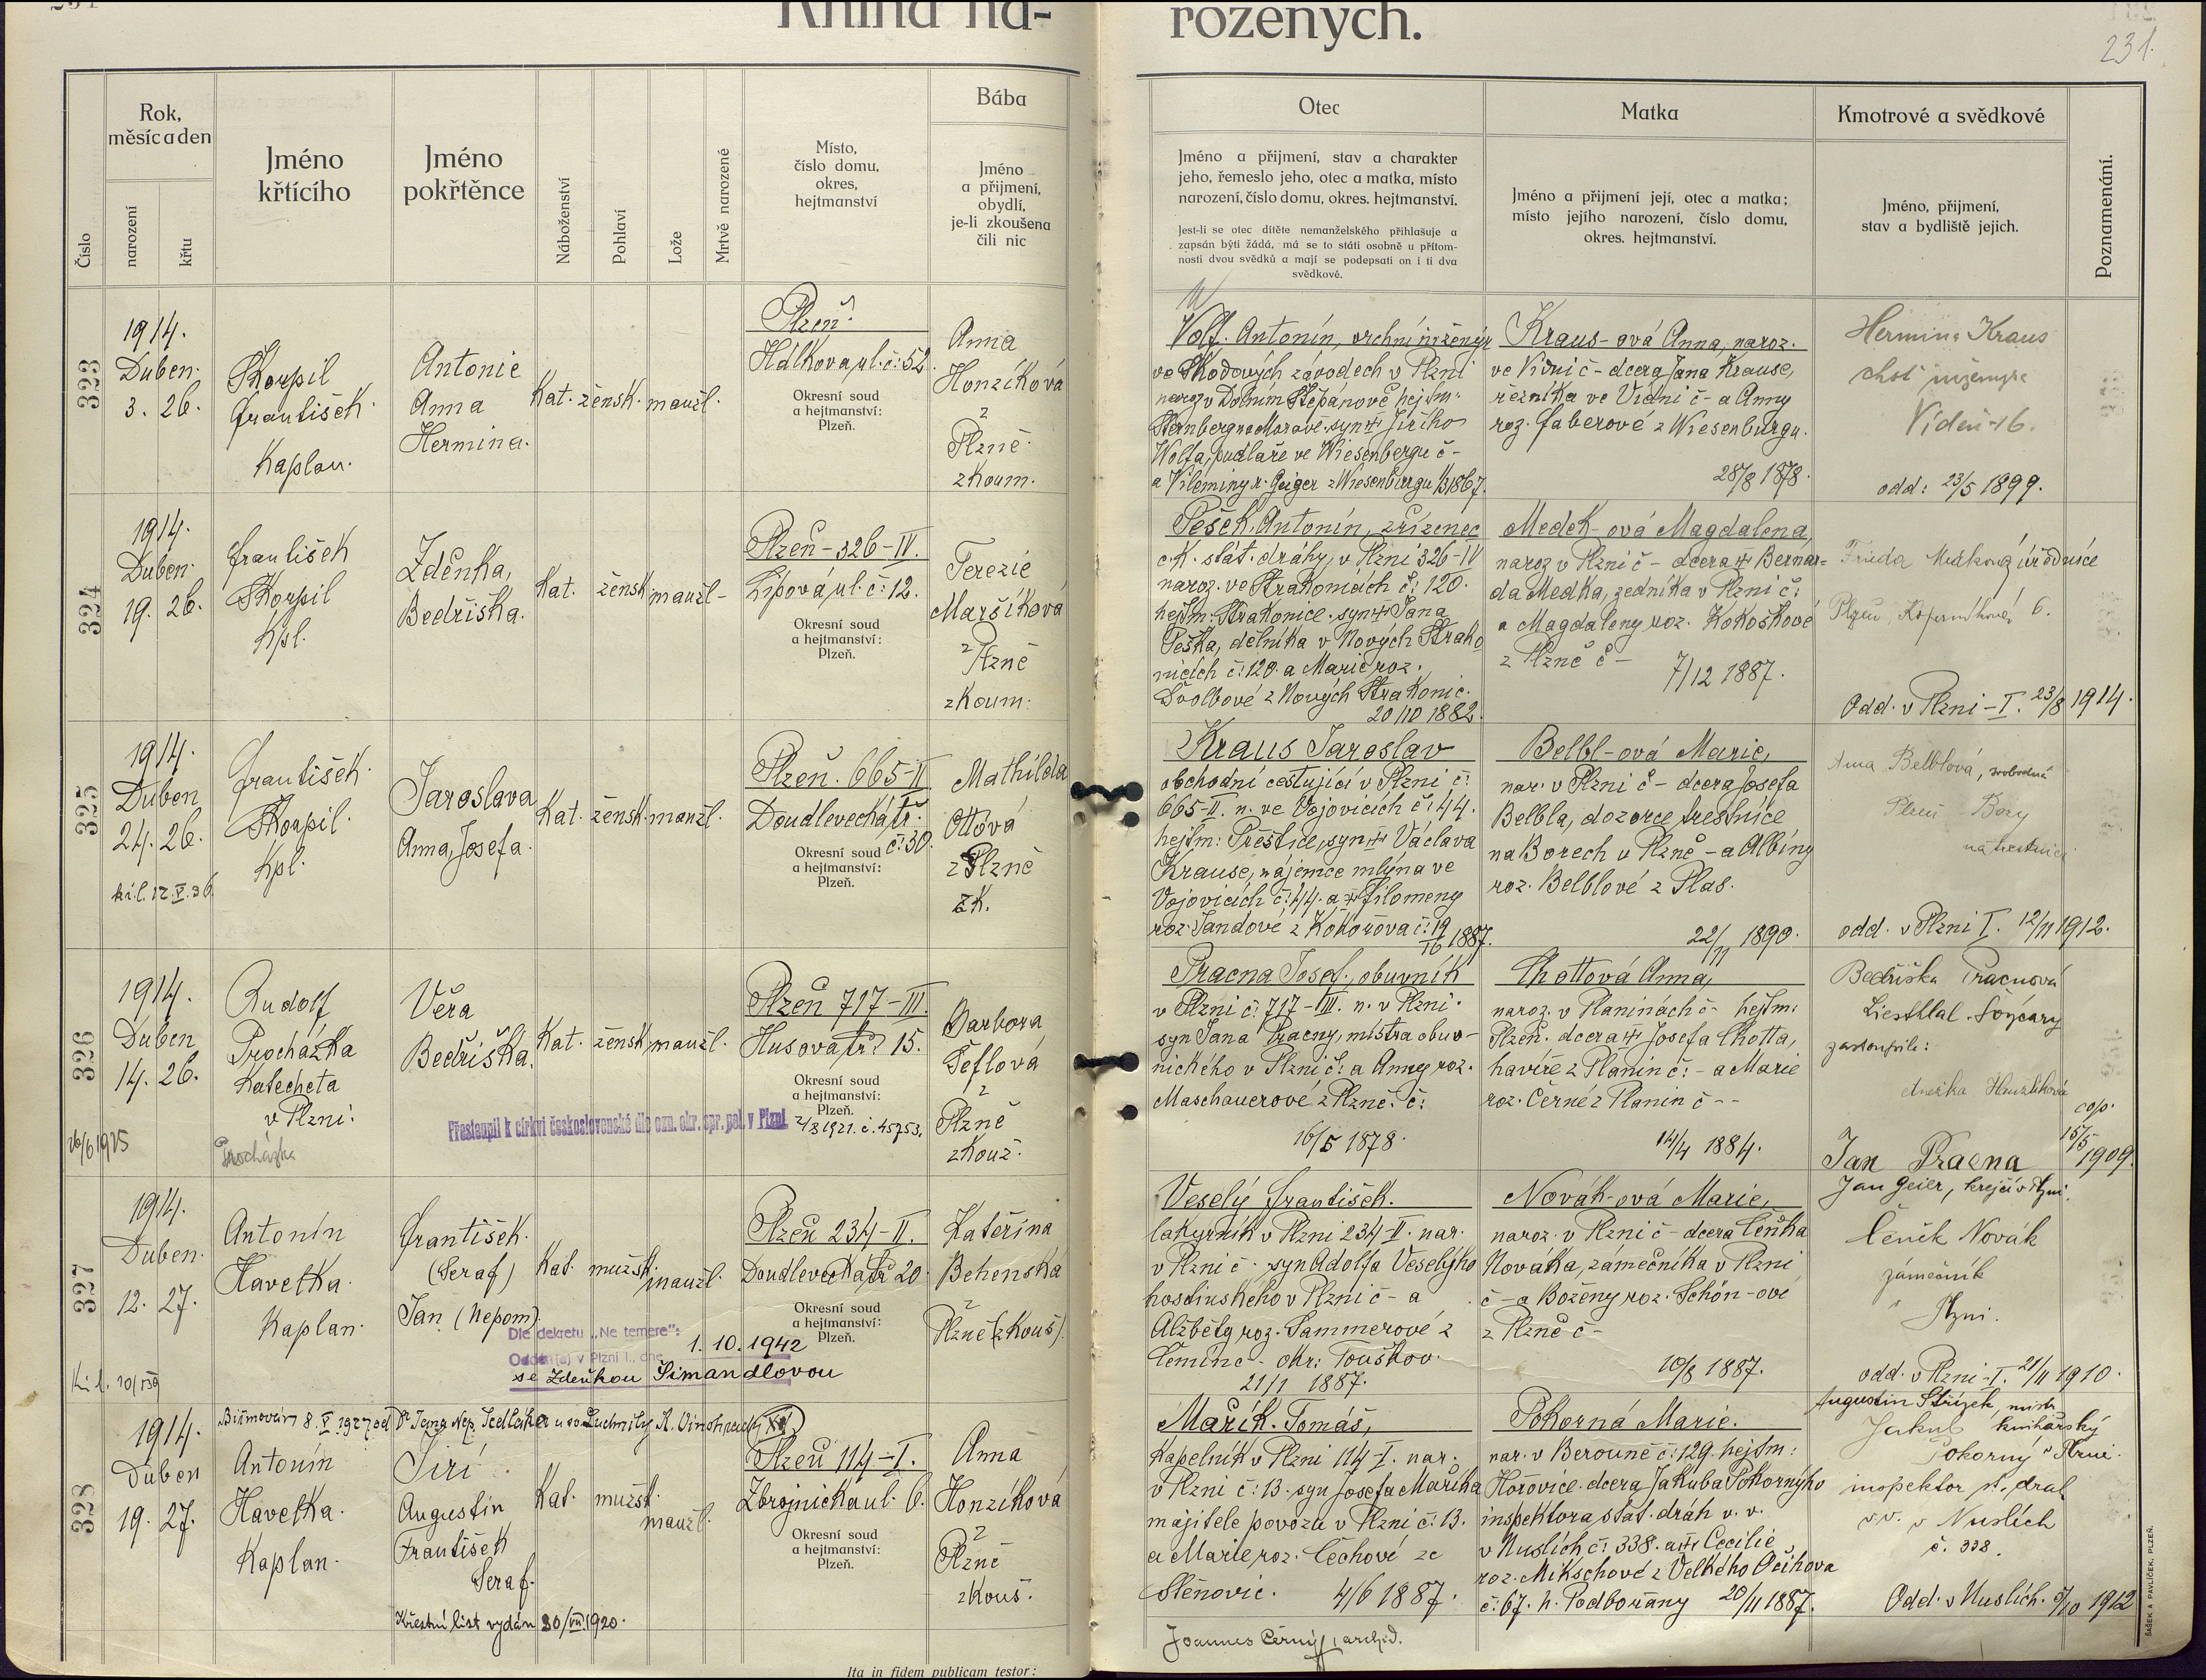 Kniha na-
rozených.
231.
Číslo
Rok,
měsíc a den
narození
křtu
Jméno
křtícího
Jméno
pokřtěnce
Náboženství
Pohlaví
Lože
Mrtvě narozené
Místo,
číslo domu,
okres,
hejtmanství
Bába
Jméno
a přijmení,
obydlí,
je-li zkoušena
čili nic
Otec
Jméno a přijmení, stav a charakter
jeho, řemeslo jeho, otec a matka, místo
narození, číslo domu, okres. hejtmanství.
Jest-li se otec dítěte nemanželského přihlašuje a
zapsán býti žádá, má se to státi osobně u přítom-
nosti dvou svědků a mají se podepsati on i ti dva
svědkové.
Matka
Jméno a přijmení její, otec a matka;
místo jejího narození, číslo domu,
okres. hejtmanství.
Kmotrové a svědkové
Jméno, přijmení,
stav a bydliště jejich.
Poznamenání.
323
1914.
Duben.
3. 26.
Škorpil
František
Kaplan.
Antonie
Anna
Hermina.
Kat. žensk. manžl.
Plzeň.
Hálkova ul. č. 52.
Okresní soud
a hejtmanství:
Plzeň.
Anna
Honzíková
z
Plzně
zkoum.
Wolf. Antonín, vrchní inženýr
ve Škodových závodech v Plzni
naroz v Dolním Štěpánově hejtm.
Šternberg na Moravě. syn Jiřího
Wolfa, pudlaře ve Wiesenbergu č –
a Vilemíny r. Geiger z Wiesenburgu 1867.
Kraus-ová Anna, naroz.
ve Vídni č – dcera Jana Krause,
řezníka ve Vídni č – a Anny
roz. Faberové z Wiesenburgu.
28/8 1878.
Hermina Kraus
choť inženýra
Vídeň 16.
odd: 23/5 1899.
324
1914.
Duben.
19. 26.
František
Škorpil
Kpl.
Zdeňka,
Bedřiška.
Kat. žensk. manžl –
Plzeň – 326 – IV.
Lípová ul. č. 12.
Okresní soud
a hejtmanství:
Plzeň.
Terezie
Maršíková
z
Plzně
zkoum.
Pešek Antonín, zřízenec
c. k. stát. dráhy, v Plzni 326 – IV
naroz. ve Strakonicích č. 120.
hejtm: Strakonice. syn Jana
Peška, dělníka v Nových Strako
nicích č. 120. a Marie, roz.
Dvolbové z Nových Strakonic.
20/10 1882.
Medek-ová Magdalena,
naroz v Plzni č – dcera Bernar-
da Medka, zedníka v Plzni č:
a Magdaleny roz. Kokoškové
z Plzně č –
7/12 1887.
Frieda úřednice
Plzeň, 6.
Odd. v Plzni – I. 23/8 1914.
325
1914.
Duben
24. 26.
kř. l. 12. V. 36.
František
Škorpil.
Kpl.
Jaroslava
Anna, Josefa.
Kat. žensk. manžl.
Plzeň. 665 – II
Doudlevecká tř.
č. 30.
Okresní soud
a hejtmanství:
Plzeň.
Mathilda
Ottová
z Plzně
zk.
Kraus Jaroslav
obchodní cestující v Plzni č:
665 – II. n. ve Vojovicích č. 44.
hejtm: Přeštice, syn Václava
Krause, nájemce mlýna ve
Vojovicích č. 44. a Filomeny
roz. Jandové z Kokořova č: 19
1887.
Belbl-ová Marie,
nar. v Plzni č – dcera Josefa
Belbla, dozorce trestnice
na Borech v Plzně – a Albíny
roz. Belblové z Plas.
22/11 1890.
Anna Belblová, svobodná
Plzeň – Bory
na trestnici
odd. v Plzni I. 12/11 1912.
326
1914.
Duben
14. 26.
26/6 1925
Rudolf
Procházka
Katecheta
v Plzni.
Procházka
Věra
Bedřiška.
Kat. žensk. manžl.
Plzeň 717 – III.
Husova tř. 15.
Okresní soud
a hejtmanství:
Plzeň.
Přestoupil k církvi československé dle ozn. okr. spr. pol. v Plzni. 2/3 1921. č. 45753.
Barbora
Šeflová
z
Plzně
zkouš.
Pracna Josef, obuvník
v Plzni č. 717 – III. n. v Plzni.
syn Jana Pracny, mistra obuv-
nického v Plzni č: a Anny roz.
Maschauerové z Plzně. č:
16/5 1878.
Chottová Anna,
naroz. v Planinách č – hejtm:
Plzeň. dcera Josefa Chotta,
havíře z Planin č: – a Marie
roz. Černé z Planin č – –
14/4 1884.
Bedřiška Pracnová
Liesthlal. Švýcary
zastoupila:
Anežka
cop.
15/5
1909.
Jan Pracna
Jan Geier, krejčí v Plzni.
327
1914.
Duben.
12. 27.
Kř. l. 10/I 39
Antonín
Havelka.
Kaplan.
František.
(Seraf)
Jan (Nepom).
Kat. mužsk. manžl.
Plzeň 234 – II.
Doudlevecká tř 20.
Okresní soud
a hejtmanství:
Plzeň.
Dle dekretu „Ne temere":
Oddán(a) v Plzni I., dne 1. 10. 1942
se Zdeňkou Šimandlovou
Kateřina
Behenska
z
Plzně (zkouš).
Veselý František.
lakyrník v Plzni 234 – II. nar.
v Plzni č – syn Adolfa Veselýho
hostinského v Plzni č – a
Alžběty roz. Sammerové z
Čeminc – okr: Touškov.
21/1 1887.
Novák-ová Marie,
naroz. v Plzni č – dcera Čeňka
Nováka, zámečníka v Plzni
č – a Boženy roz. Schön-ové
z Plzně č –
10/8 1887.
Čeněk Novák
zámečník
v Plzni.
odd. v Plzni – I. 21/11 1910.
328
Biřmován 8. V. 1927 od Dr Jana Nep. Sedláka u sv. Ludmily K. Vinohrady XII
1914.
Duben
19. 27.
Antonín
Havelka.
Kaplan.
Jiří
Augustin
František
Seraf.
Křestní list vydán 30/VII. 1920.
Kat. mužsk. manžl.
Plzeň 114 – I.
Zbrojnická ul. 6.
Okresní soud
a hejtmanství:
Plzeň.
Anna
Honzíková
z
Plzně
zkouš.
Mařík. Tomáš,
kapelník v Plzni 114 – I. nar.
v Plzni č: 13. syn Josefa Maříka
majitele povozu v Plzni č. 13.
a Marie roz. Čechové ze
Stěnovic. 4/6 1887.
Pokorná Marie.
nar. v Berouně č: 129. hejtm:
Hořovice. dcera Jakuba Pokorného
inspektora stát. drah v. v.
v Nuslích č: 338. a Cecilie
roz. Mikschové z Velkého Očihova
č. 67. h. Podbořany 20/11 1887.
Augustin Střízek, mistr
knihařský
v Plzni.
Jakub
Pokorný
inspektor st. drah
v. v. v Nuslích
č. 338.
Odd. v Nuslích. 1912
Joannes Černý, archid.
Ita in fidem publicam testor:
ŠAŠEK A PAVLÍČEK, PLZEŇ.